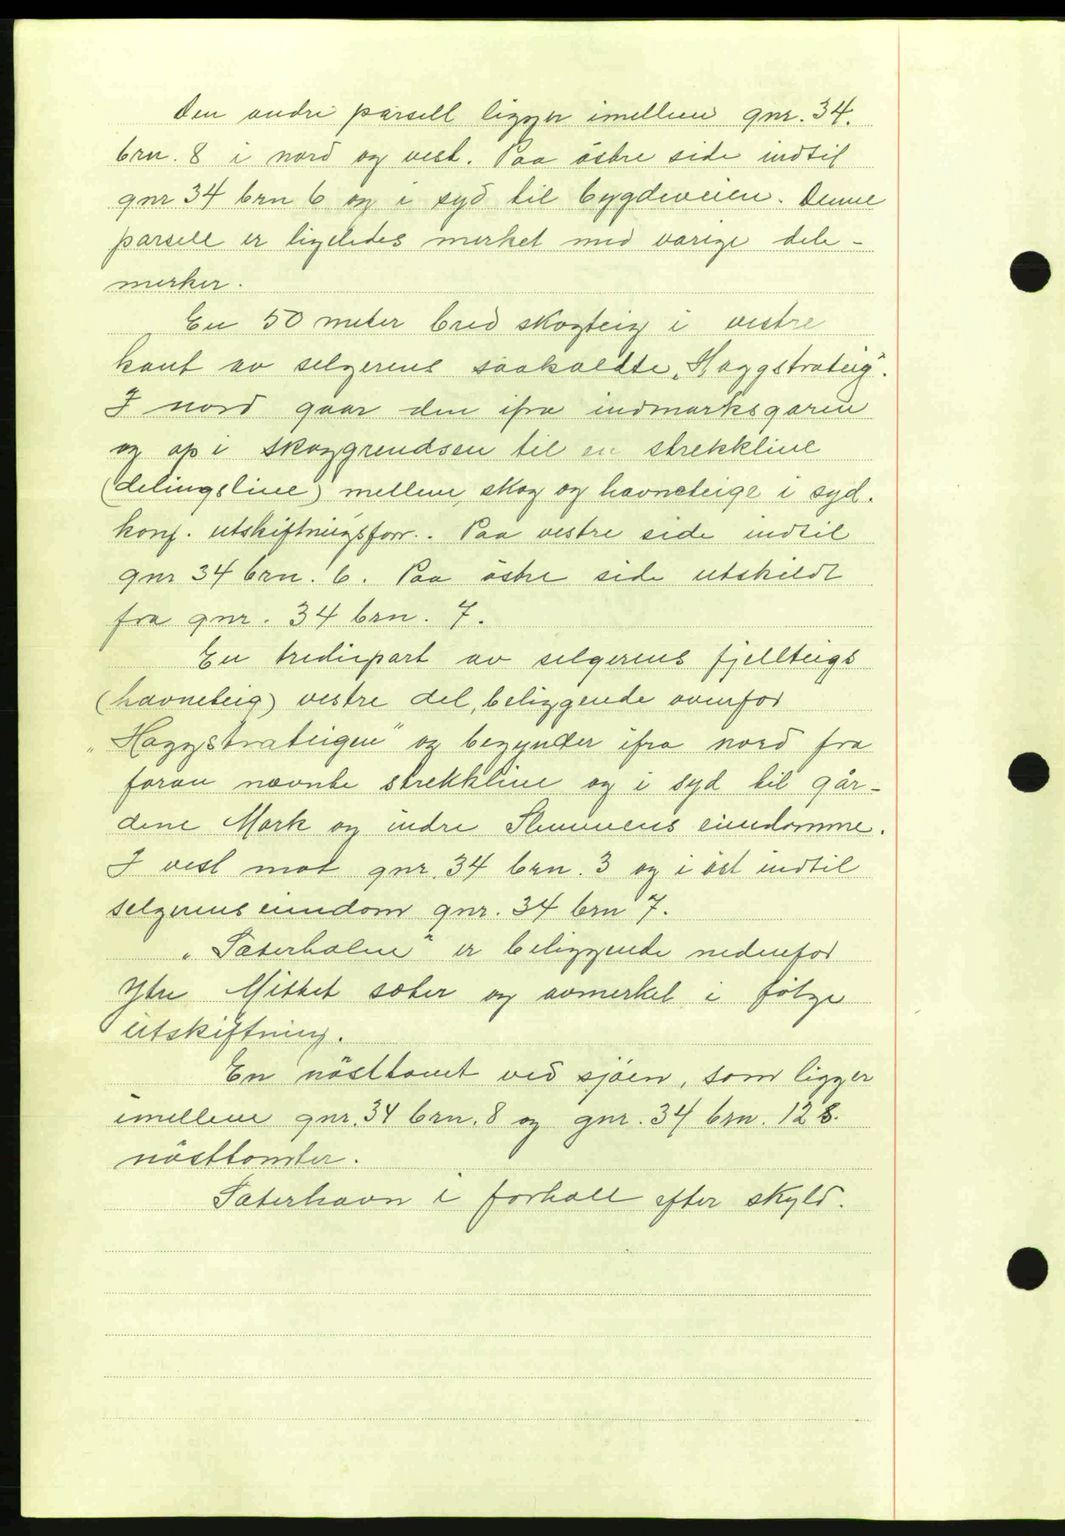 Den andre parsell ligger imellem gnr. 34.
brn. 8 i nord og vest. Paa östre side indtil
gnr 34 brn 6 og i syd til bygdeveien. Denne
parsell er ligeledes merket med varige dele-
merker.
En 50 meter bred skogteig i vestre
kant av selgerens saakaldte „Haggstrateig".
I nord gaar den ifra indmarksgaren
og op i skoggrendsen til en strekkline
(delingsline) mellem skog og havneteige i syd.
konf. utskiftningsforr.. Paa vestre side indtil
gnr 34 brn. 6. Paa östre side utskildt
fra gnr. 34 brn. 7.
En trediepart av selgerens fjellteigs
(havneteig) vestre del, beliggende ovenfor
„Haggstrateigen" og begynder ifra nord fra
foran nævnte strekkline og i syd til går-
dene Mork og indre Slemmens eiendomme.
I vest mot gnr. 34 brn. 3 og i öst indtil
selgerens eiendom gnr. 34 brn 7.
„Sæterholm" er beliggende nedenfor
Ytre Mittet sæter og avmerket i fölge
utskiftning.
En nösttomt ved sjöen, som ligger
imellem gnr. 34 brn. 8 og gnr. 34 brn. 12 s.
nösttomter.
Sæterhavn i forhold efter skyld.